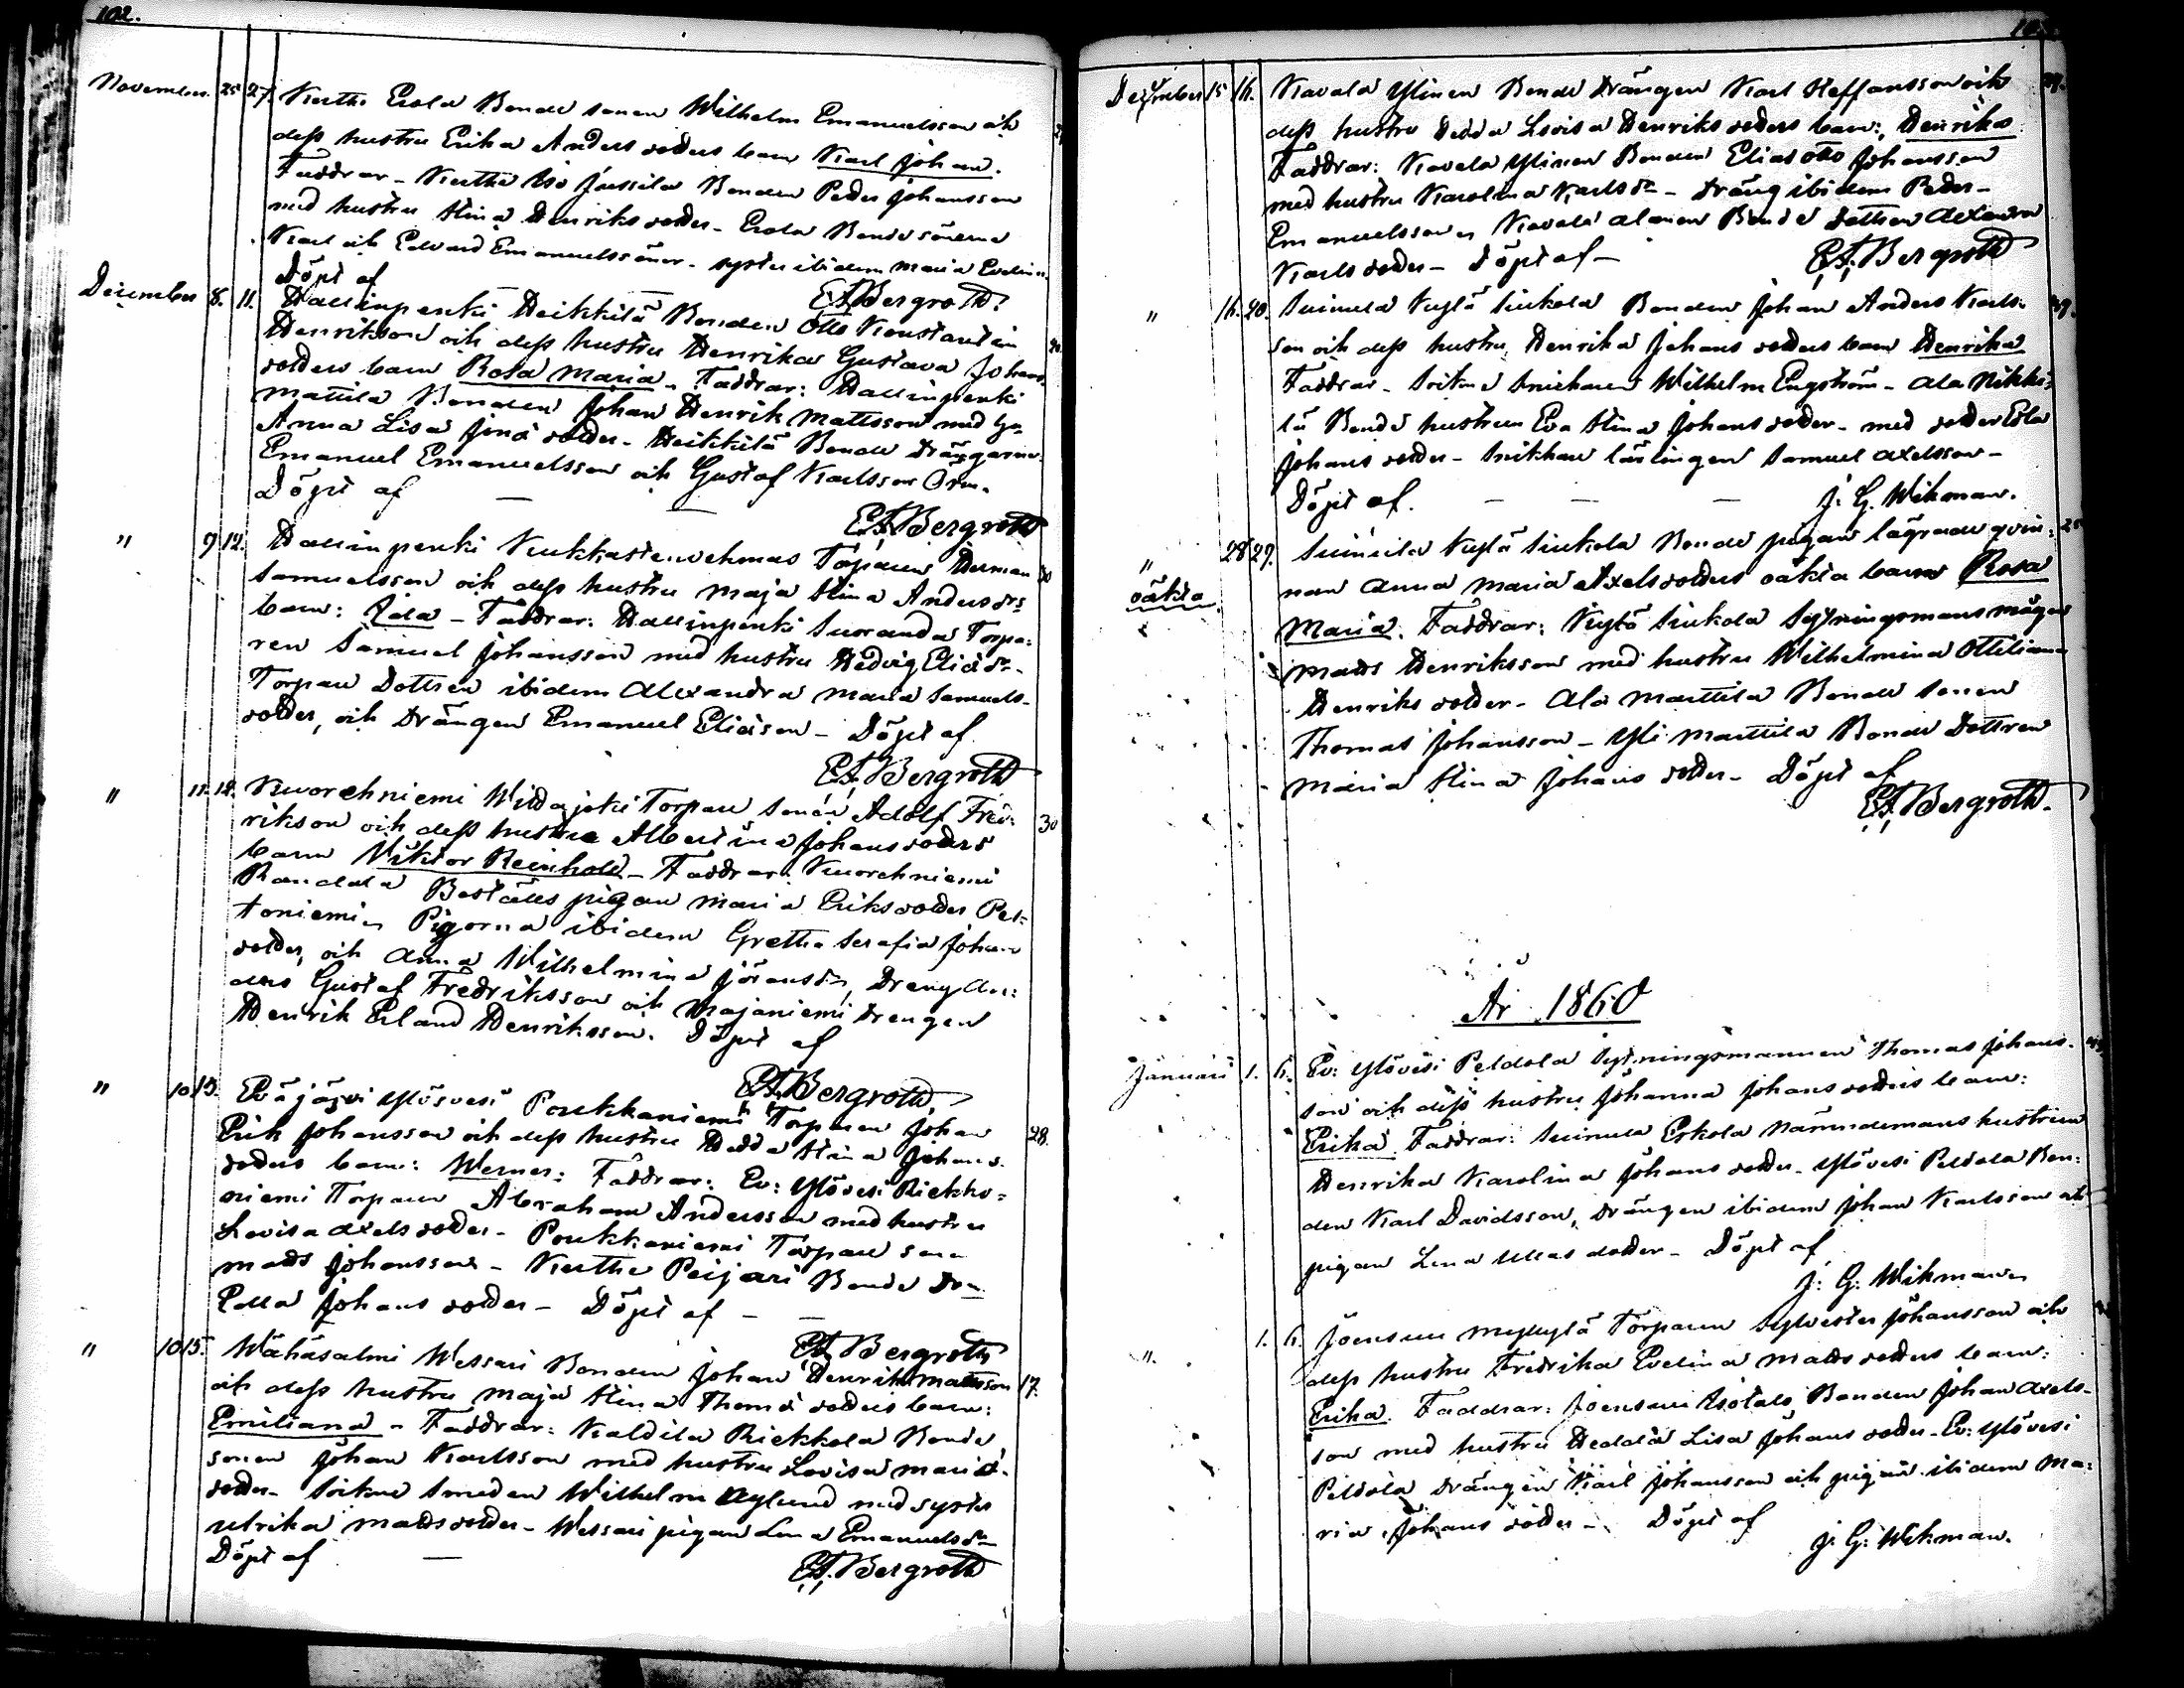 102.
November. 25 27. Kurthi Erola Bonde sonen Wilhelm Emanuelsson och
dess hustru Erika Anders dotters barn Karl Johan.
Faddrar - Kurthi Iso Jussila Bonden Peder Johansson
med hustru Stina Henriks dotter - Erola Bonde sönerna
Karl och Edvard Emanuelssöner - syster ibidem Maria Evelina
Döpt af E.A. Bergroth.
December 8. 11. Hallinpenki Heikkilä Bonden Otto Konstantin
Henrikson och dess hustru Henrika Gustava Johans
dotters barn Rosa Maria - Faddrar: Hallinpenki
Mattila Bonden Johan Henrik Mattsson med hu
Anna Lisa Jona dotter - Heikkilä Bonde Drängarne
Emanuel Emanuelsson och Gustaf Karlsson
Döpt af —
E.A. Bergroth
" 9 12. Hallinpenki Torparen Herman 30
Samuelsson och dess hustru Maja Stina Anders drs
barn: Ida - Faddrar: Hallinpenki Suoranda Torpa-
ren Samuel Johansson med hustru Hedvig Elias dr -
Torpare Dottren ibidem Alexandra Maria Samuels-
dotter, och Drängen Emanuel Eliason - Döpt af
E.A. Bergroth
" 11. 12. Kuorehniemi Torpare sonen Adolf Fred-
rikson och dess hustru Albertina Johans dotters 30
barn Viktor Reinhold - Faddrar: Kuorehniemi
Randala pigan Maria Eriks dotter Pel-
toniemi, Pigorna ibidem Gretha Serafia Johans
dotter, och Anna Wilhelmina Görans dr, Dreng An-
ders Gustaf Fredriksson och Majaniemi Drengen
Henrik Erland Henriksson. Döpt af
E.A. Bergroth
" 10 13. Eväjärvi Ylösvesi Poukkaniemi Torparen Johan
Erik Johansson och dess hustru Hedda Stina Johans 28.
dotters barn: Werner: Faddrar: Ev: Ylövesi Riekko-
niemi Torparen Abraham Andersson med hustru
Lovisa Axels dotter - Poukkaniemi Torpare son
Matts Johansson - Kurthi Peijari Bonde
Edla Johans dotter - Döpt af —
E.A. Bergroth
" 10 15. Wähäsalmi Wessari Bonden Johan Henrik Mattsson 17.
och dess hustru Maja Stina Thoma dotters barn:
Emiliana - Faddrar: Kaldila Riekkola Bonde
sonen Johan Karlsson med hustru Lovisa Maria
dotter - Sockne Smeden Wilhelm Nylund med syster
Ulrika Matts dotter - Wessari pigan Lena Emanuels dr
Döpt af —
E.A. Bergroth
December 15 16. Kavala Ylinen Bonde Drängen Karl Steffansson och
dess hustru Hedda Lovisa Henriks dotters barn: Henrika
Faddrar: Kavala Ylinen Bonden Elias Otto Johansson
med hustru Karolina Karls dr - Dräng ibidem Peder -
Emanuelsson, Kavala Alanen Bonde Dottren Alexandra
Karls dotter - Döpt af - E.A. Bergroth
" 16. 20. Suinula Kylä Siukola Bonden Johan Anders Karls- 39.
son och dess hustru Henrika Johans dotters barn Henrika
Faddrar - Sockne Snickaren Wilhelm Engström - Ala Nikki-
lä Bonde hustrun Eva Stina Johans dotter - med dotter Edla
Johans dotter - Snickare lärlingen Samuel Axelsson -
Döpt af. — — — J. G. Wikman.
" 28 29. Suinula Kylä Siukola Bonde pigan lägrade qvin-
oäkta nan Anna Maria Axels dotters oäkta barn Rosa
Maria. Faddrar: Kylä Siukola Sytningsmans mågen
Matts Henriksson med hustru Wilhelmina Ottiliana
Henriks dotter - Ala Marttila Bonde sonen
Thomas Johansson - Yli Marttila Bonde Dottren
Maria Stina Johans dotter - Döpt af
E.A. Bergroth.
År 1860
Januari 1. 6. Ev: Ylövesi Peldola Sytningsmannen Thomas Johans-
son och dess hustru Johanna Johans dotters barn:
Erika. Faddrar: Suinula Eskola Nämndemans hustrun
Henrika Karolina Johans dotter - Ylövesi Peldola Bon-
den Karl Davidsson, Drängen ibidem Johan Karlsson och
pigan Lena Ullas dotter - Döpt af
J: G: Wikman
". 1. 6. Joensuu Myllykylä Torparen Sylvester Johansson och
dess hustru Fredrika Evelina Matts dotters barn:
Erika. Faddrar: Joensuu Isotalo Bonden Johan Axels-
son med hustru Hedda Lisa Johans dotter - Ev: Ylövesi
Peldola Drängen Karl Johansson och pigan ibidem Ma-
ria Johans dotter - Döpt af
J: G: Wikman.